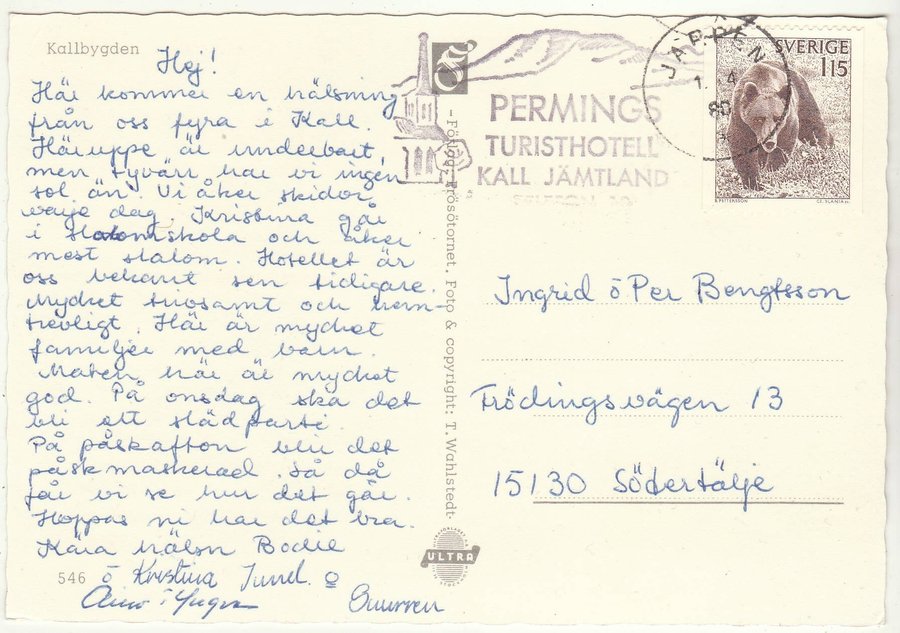 Kallbygden
Hej!
Här kommer en hälsning
från oss fyra i Kall.
Häruppe är underbart,
men tyvärr har vi ingen
sol än. Vi åker skidor
varje dag. Kristina går
i slalomskola och åker
mest slalom. Hotellet är
oss bekant sen tidigare.
Mycket trivsamt och hem-
trevligt. Här är mycket
familjer med barn.
Maten här är mycket
god. På onsdag ska det
bli ett slädparti.
På påskafton blir det
påskmaskerad. Så då
får vi se hur det går.
Hoppas ni har det bra.
Kära hälsn Bodil
ö Kristina
546
PERMINGS
TURISTHOTELL
KALL JÄMTLAND
JÄRPEN
1. 4
80
SVERIGE
115
Förlag: Frösötornet. Foto & copyright: T. Wahlstedt.
ULTRA
Ingrid ö Per Bengtsson
Frödingsvägen 13
15130 Södertälje